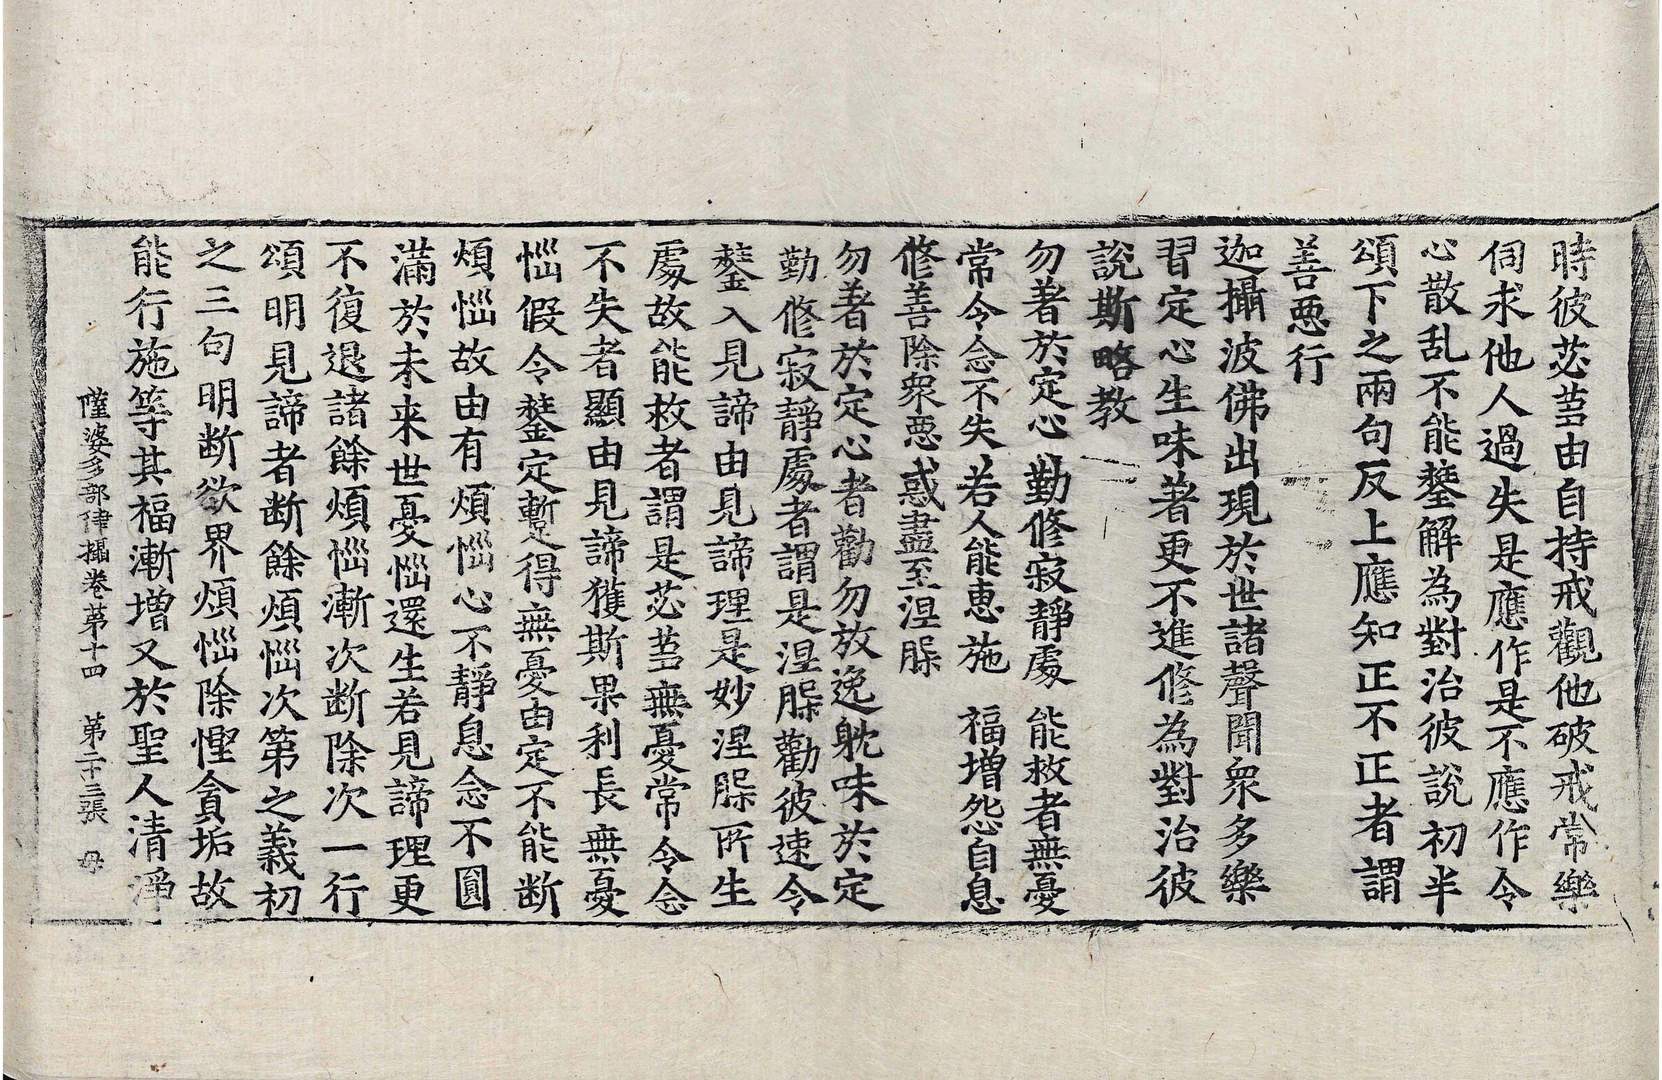 時彼苾芻由自持戒觀他破戒常樂
伺求他人過失是應作是不應作令
心散乱不能鑒解為對治彼說初半
頌下之兩句反上應知正不正者謂
善惡行
迦攝波佛出現於世諸聲聞衆多樂
習定心生味著更不進修為對治彼
說斯略教
勿著於定心　勤修寂靜處　能救者無憂
常令念不失　若人能惠施　福增怨自息
修善除衆惡　惑盡至涅槃
勿著於定心者勸勿放逸躭味於定
勤修寂靜處者謂是涅槃勸彼速令
鑒入見諦由見諦理是妙涅槃所生
處故能救者謂是苾芻無憂常令念
不失者顯由見諦獲斯果利長無憂
惱假令鑒定暫得無憂由定不能断
煩惱故由有煩惱心不靜息念不圓
滿於未来世憂惱還生若見諦理更
不復退諸餘煩惱漸次断除次一行
頌明見諦者断餘煩惱次第之義初
之三句明断欲界煩惱除慳貪垢故
能行施等其福漸增又於聖人清淨
薩婆多部律攝卷第十四　第二十三張　母